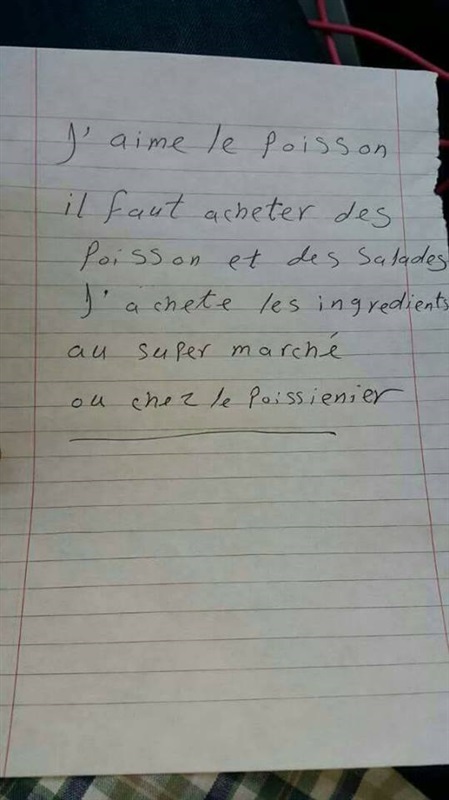 J'aime le poisson
il faut acheter des
poisson et des salades
J'achete les ingredients
au super marché
ou chez le poissienier